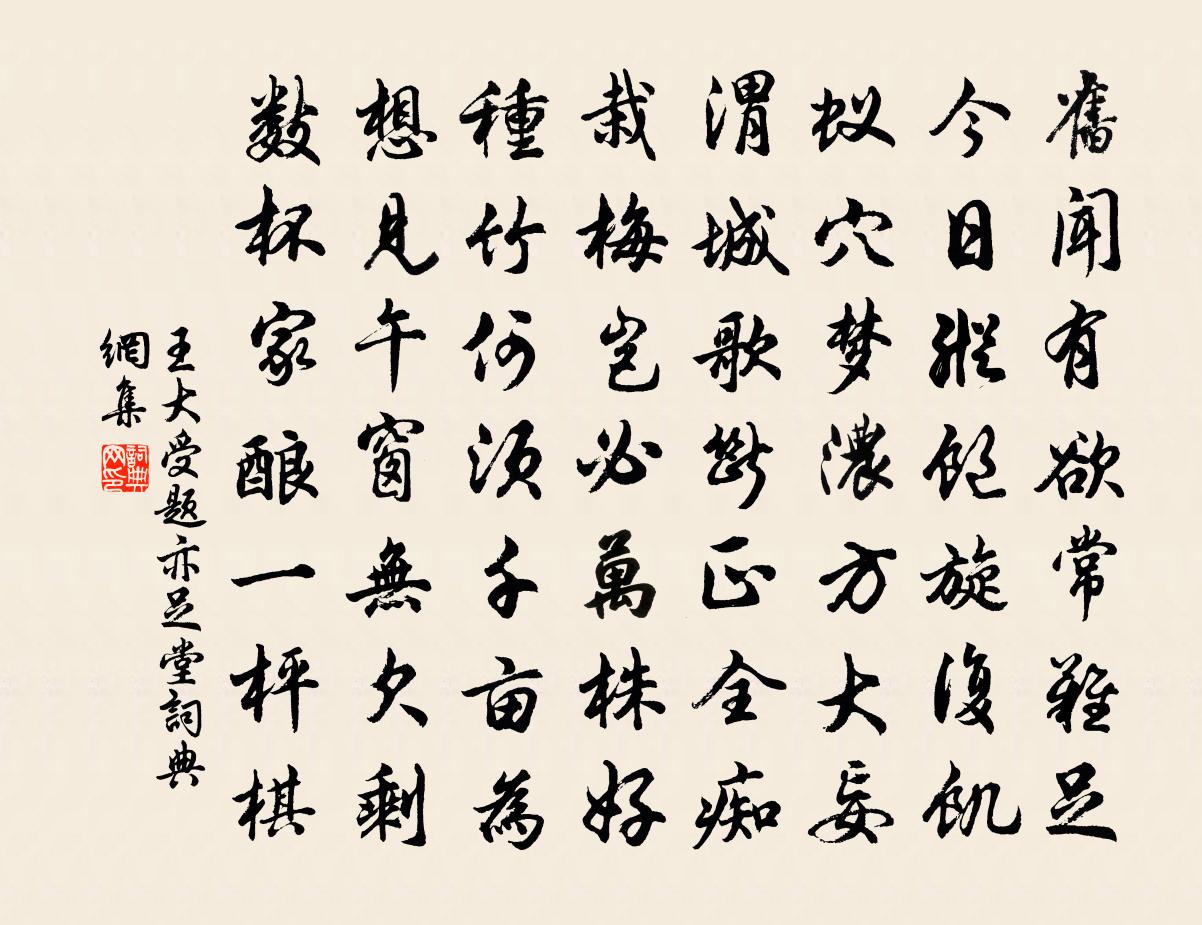 舊聞有欲常難足
今日縱飽旋復飢
蚁穴梦濃方大妄
渭城歌斷正全痴
栽梅豈必萬株好
種竹何須千亩為
想見午窗無欠剩
数杯家酿一枰棋
王大受题亦足堂詞典
網集
詞典网印